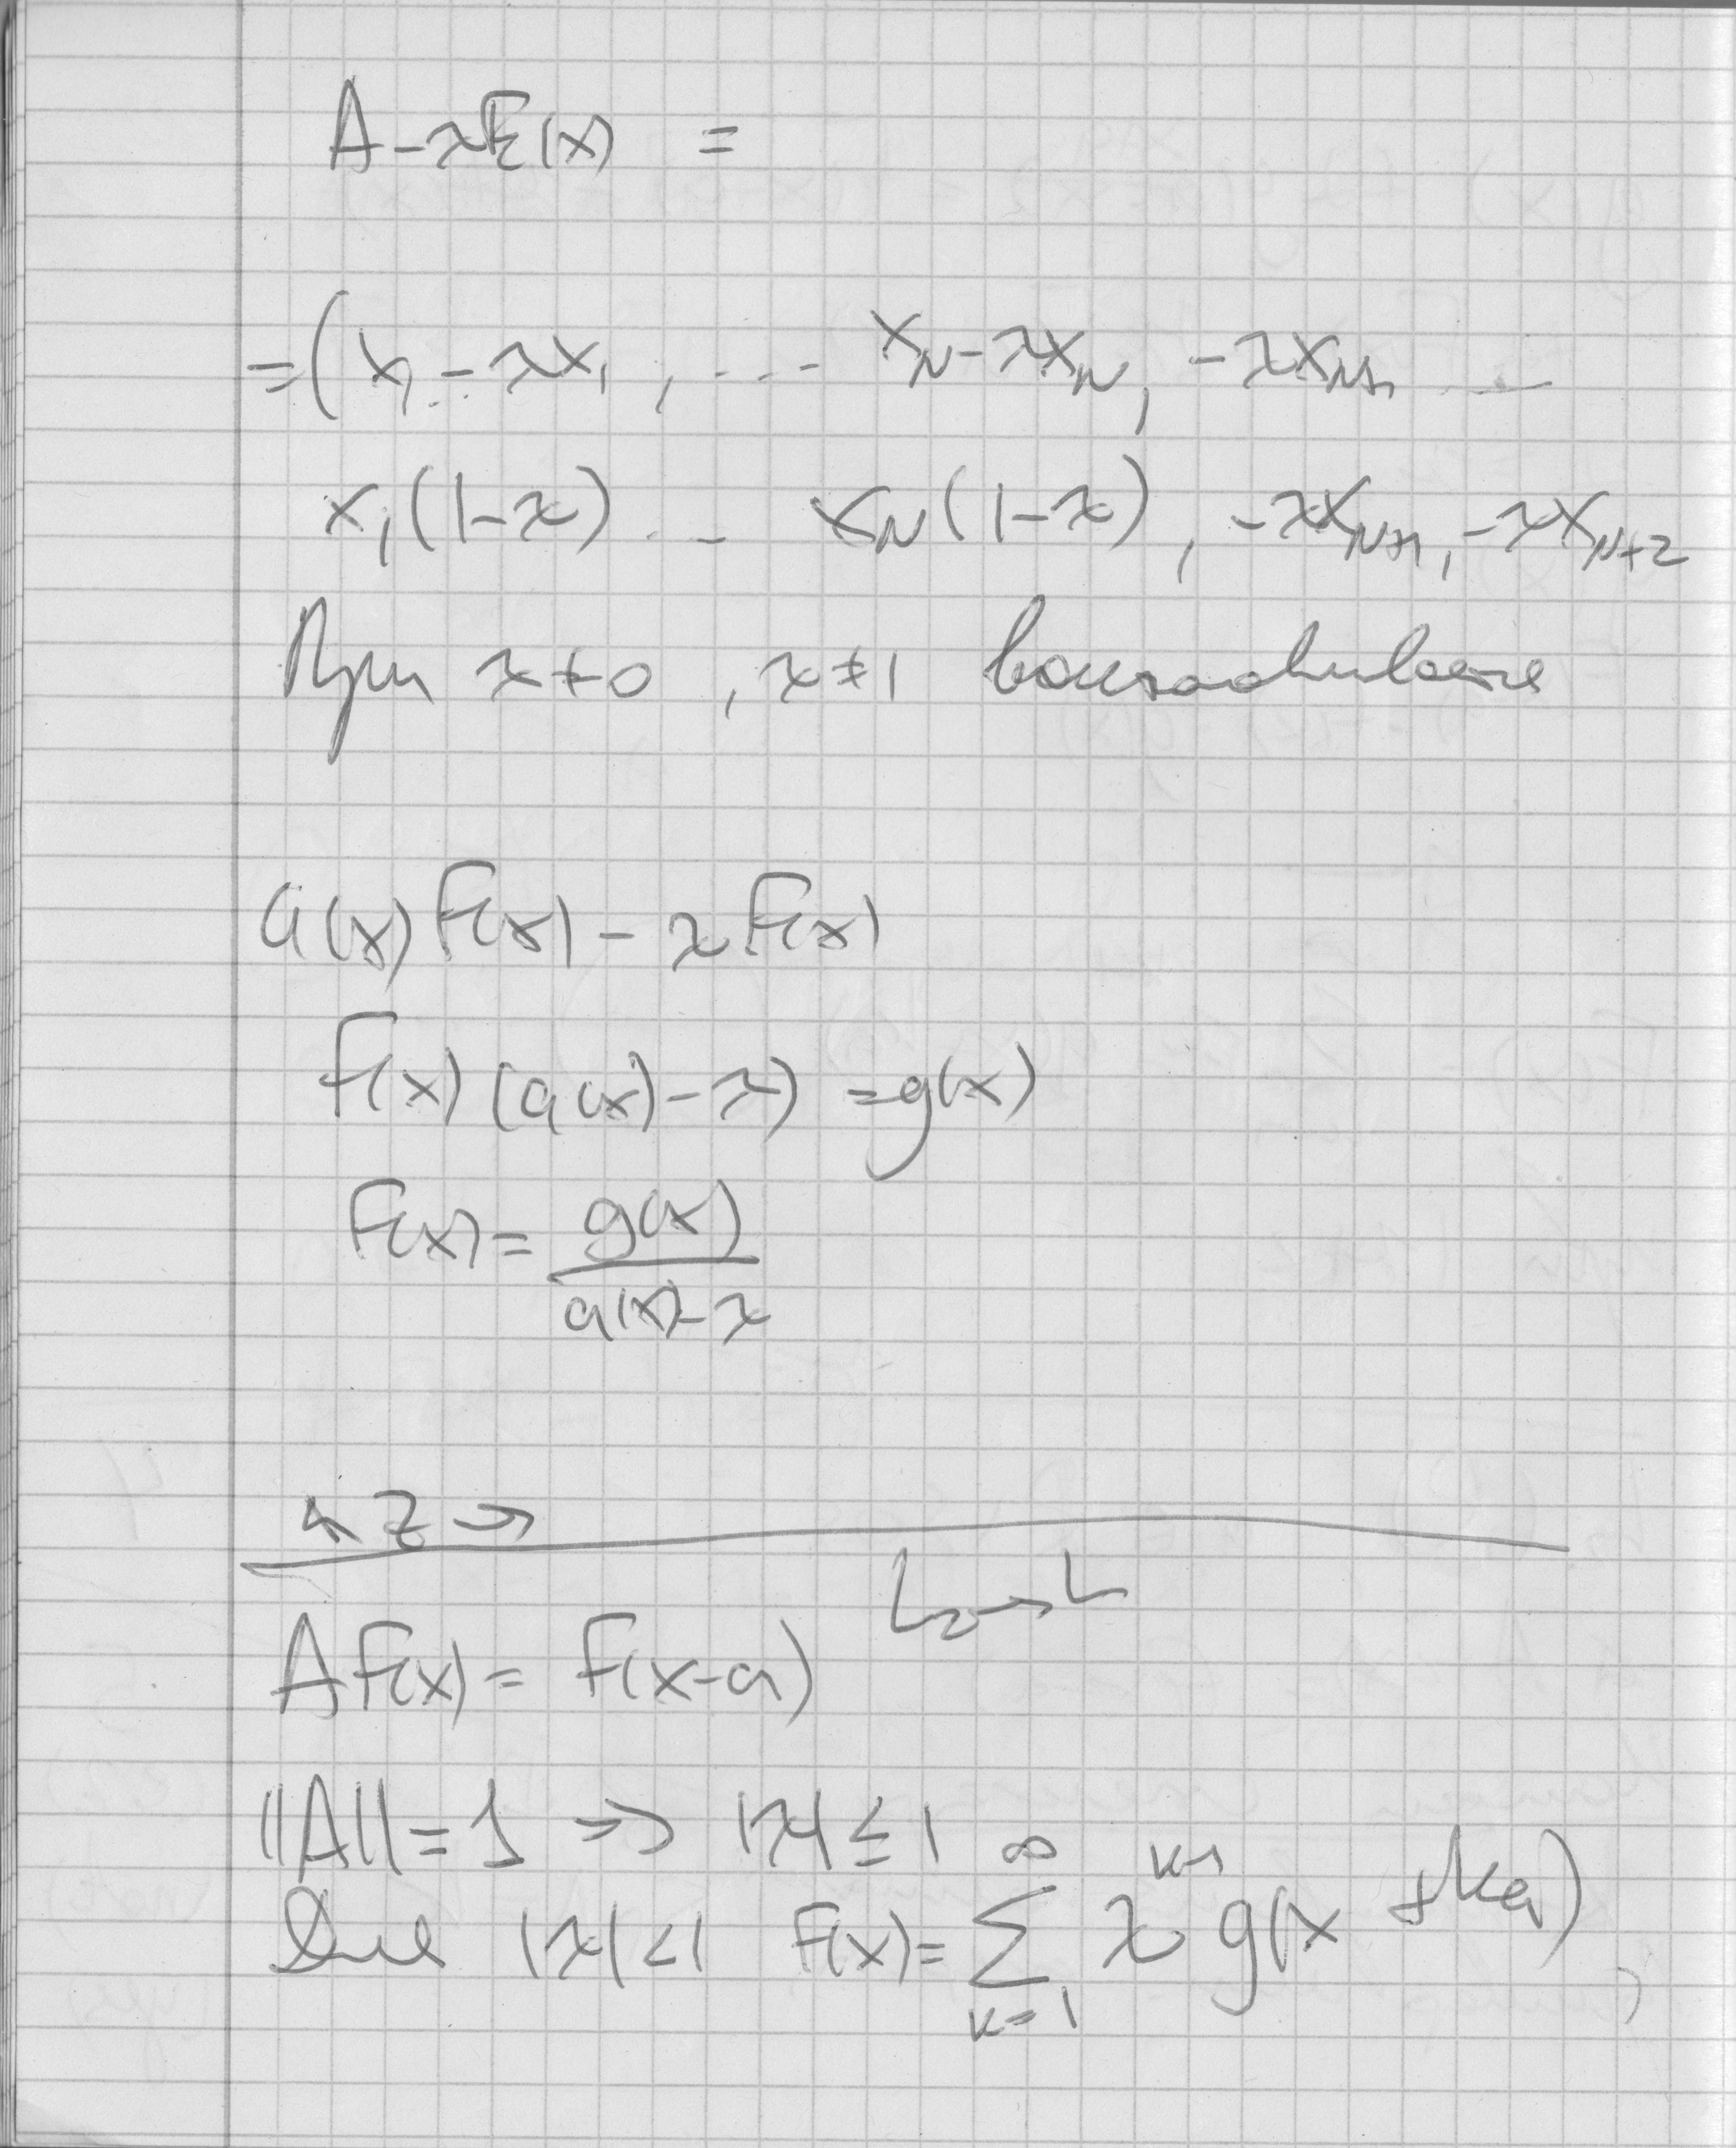 A - λE(x) =
= (x₁ - λx₁, ... x_N - λx_N, -λx_{N+1} ...
x₁(1-λ) ... x_N(1-λ), -λx_{N+1}, -λx_{N+2}
При λ≠0, λ≠1
a(x) f(x) - λ f(x)
f(x) (a(x) - λ) = g(x)
f(x) = g(x) / (a(x) - λ)
L₂→L
A f(x) = f(x-a)
||A|| = 1 => |λ| ≤ 1
Для |λ|<1 f(x) = ∑_{k=1}^{∞} λ^{k-1} g(x + ka),